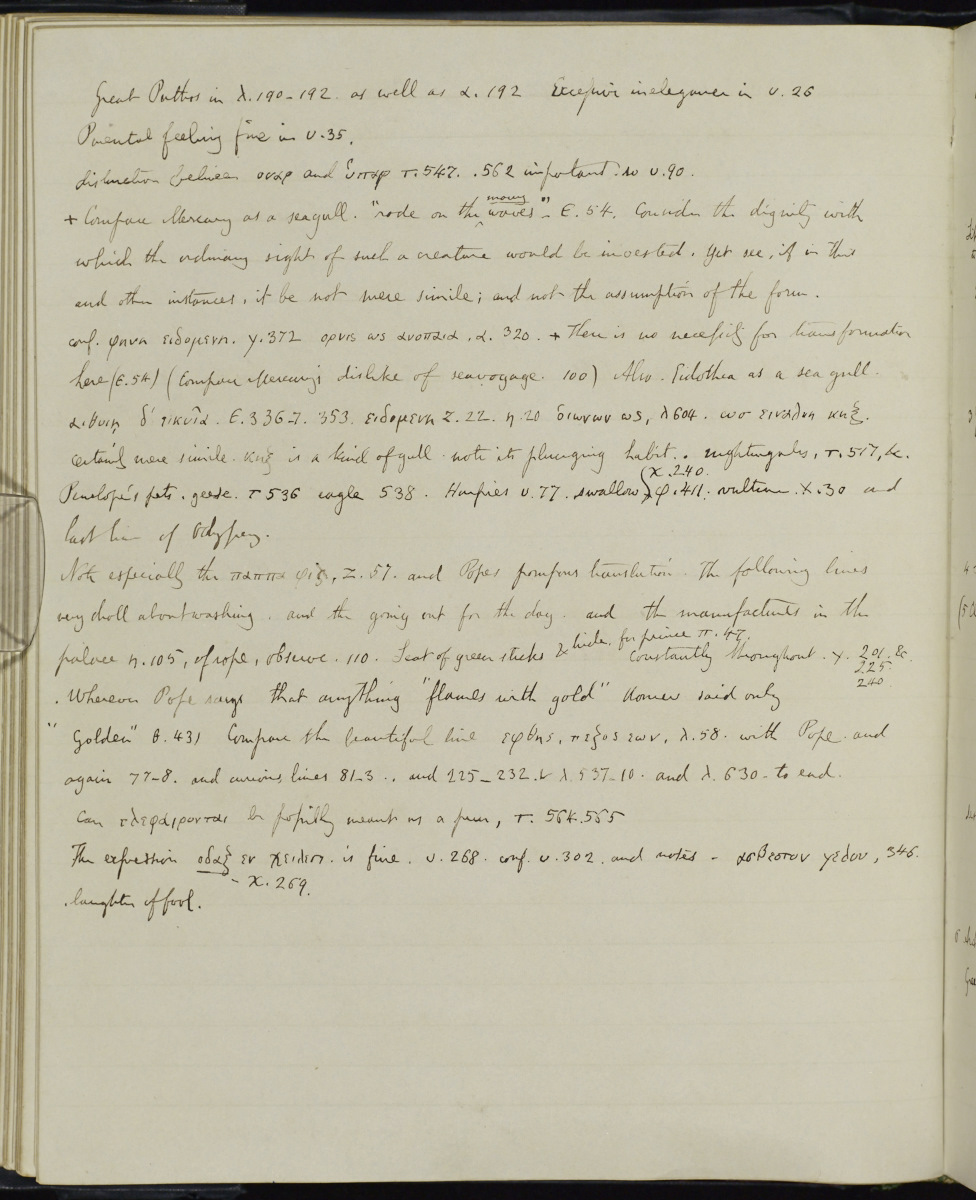 Great Pathos in λ.190-192. as well as α.192 Excessive inelegance in υ.26
Parental feeling fine in υ.35.
distinction between οναρ and ὑπαρ τ.547. .562 important. so υ.90.
+ Compare Mercury as a seagull. "rode on the many waves" - Ε.54. Consider the dignity with
which the ordinary sight of such a creature would be invested. Yet see, if in this
and other instances, it be not mere simile; and not the assumption of the form.
conf. φηνη ειδομενη. γ.372 ορνις ως ανοπαια .α. 320. + There is no necessity for transformation
here (Ε.54) (Compare Mercury's dislike of seavoyage. 100) Also. Eidothea as a sea gull.
αιθυιῃ δ' εικυῖα. Ε.336-7. 353. ειδομενη Ζ.22. η.20 οιωνων ως, λ604. ωσ ειναλιη κηξ.
certainly mere simile. κηξ is a kind of gull. note its plunging habit. . nightingales, τ. 517, &c.
Penelope's pets. geese. τ 536 eagle 538. Harpies υ.77. swallow χ.240. φ.411. vulture. χ.30 and
last line of Odyssey.
Note especially the παππα φιλε, Ζ. 57. and Popes pompous translation. The following lines
very droll about washing. and the going out for the day. and the manufactures in the
palace η.105, of rope, observe. 110. Seat of green sticks & hide. for prince π. 47. constantly throughout. γ. 201. &c.
225
240
. Wherever Pope says that anything "flames with gold" Homer said only
"Golden" θ.431 Compare the beautiful line εφθης, πεζος εων, λ.58. with Pope. and
again 77-8. and curious lines 81-3 . , and 225-232. & λ.537-10. and λ.630- to end.
Can ελεφαιρονται be possibly meant as a pun, τ. 564.565
The expression οδαξ εν χειλεσι. is fine. υ.268. conf. υ.302. and notes - ασβεστον γελον, 346.
- χ. 269.
. laughter of fool.